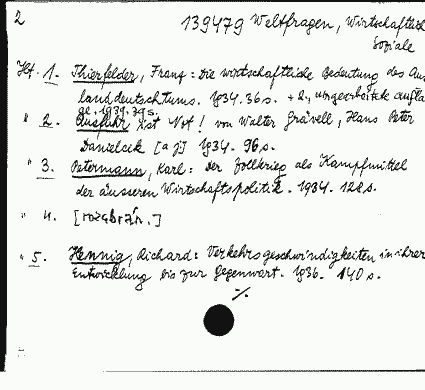 2
139479 Weltfragen, Wirtschaftlich
soziale
Hft. 1. Thierfelder, Franz: Die wirtschaftliche Bedeutung des Aus
landdeutschtums. 1934. 36 s. + 2., umgearbeitete Aufla
ge. 1939. 39 s.
" 2. Ausfuhr ist Not! von Walter Grävell, Hans Peter
Danielcik [a j] 1934. 96 s.
" 3. Petermann, Karl: Der Zollkrieg als Kampfmittel
der äusseren Wirtschaftspolitik. 1934. 128 s.
" 4. [rozebrán.]
" 5. Hennig, Richard: Verkehrsgeschwindigkeiten in ihrer
Entwicklung bis zur Gegenwart. 1936. 140 s.
./.